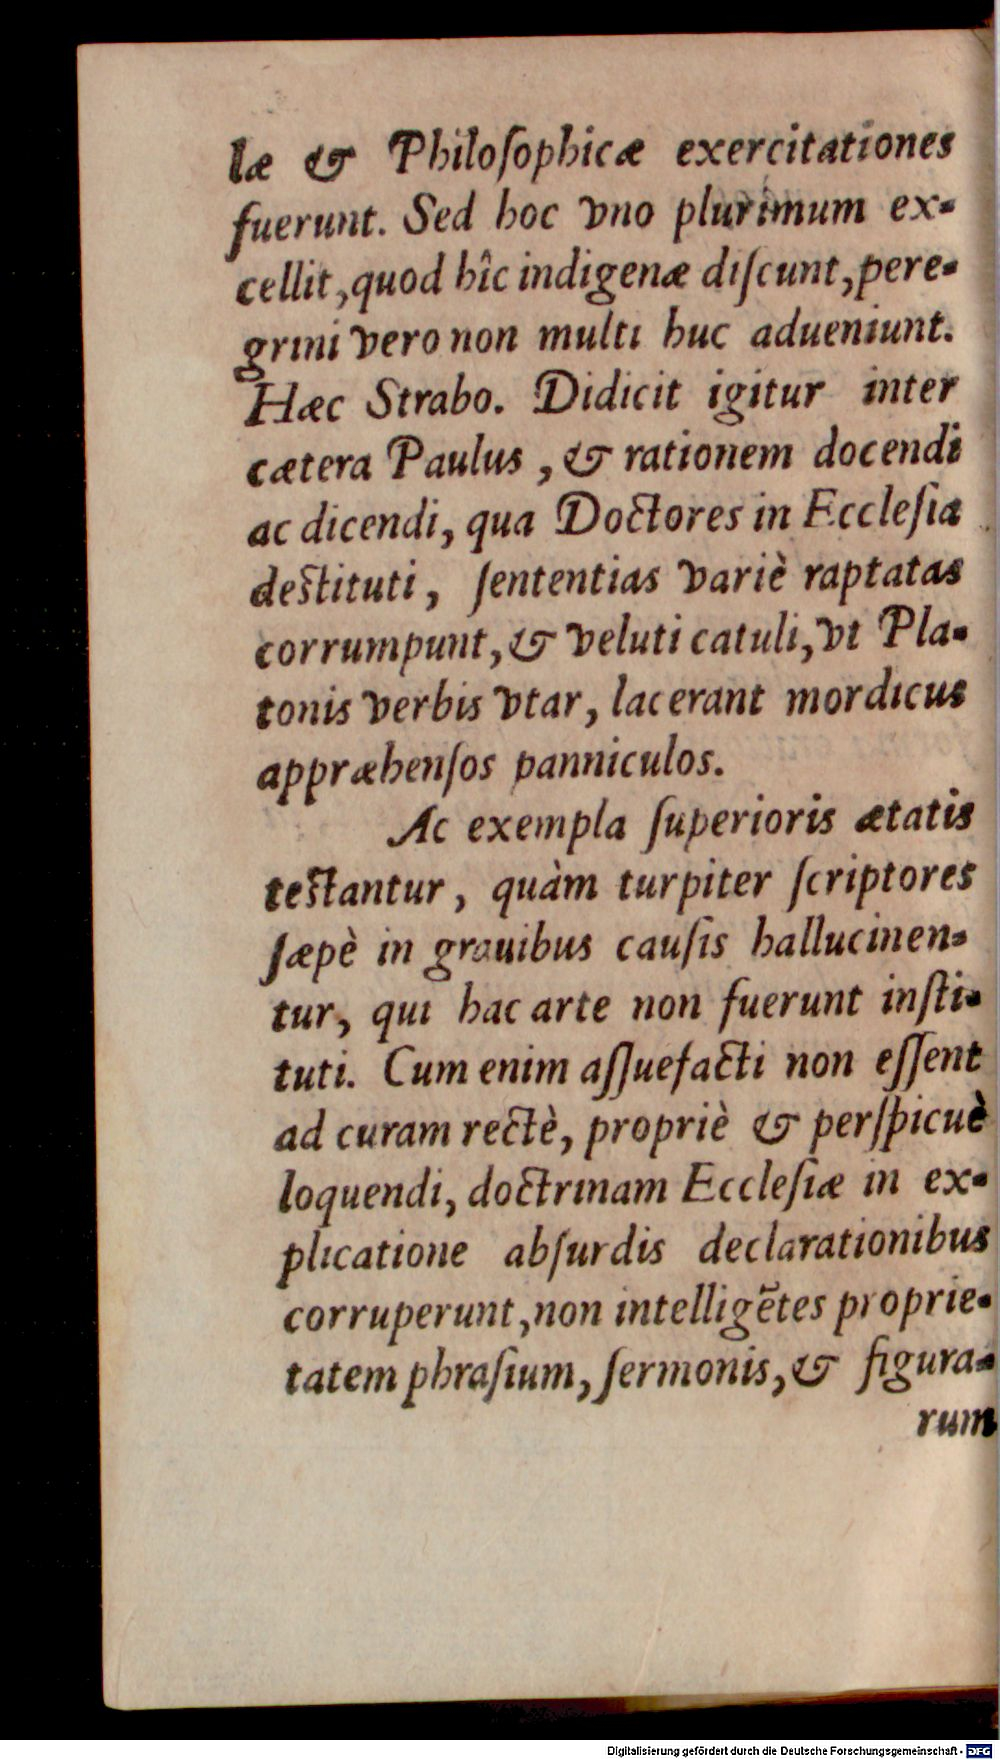 læ & Philoſophicæ exercitationes
fuerunt. Sed hoc vno plurimum ex-
cellit, quod hîc indigenæ diſcunt, pere-
grini vero non multi huc adueniunt.
Hæc Strabo. Didicit igitur inter
cætera Paulus, & rationem docendi
ac dicendi, qua Doctores in Eccleſia
deſtituti, ſententias variè raptatas
corrumpunt, & veluti catuli, vt Pla-
tonis verbis vtar, lacerant mordicus
appræhenſos panniculos.
Ac exempla ſuperioris ætatis
teſtantur, quàm turpiter ſcriptores
ſæpè in grauibus cauſis hallucinen-
tur, qui hac arte non fuerunt inſti-
tuti. Cum enim aſſuefacti non eſſent
ad curam rectè, propriè & perſpicuè
loquendi, doctrinam Eccleſiæ in ex-
plicatione abſurdis declarationibus
corruperunt, non intelligẽtes proprie-
tatem phraſium, ſermonis, & figura-
rum
Digitalisierung gefördert durch die Deutsche Forschungsgemeinschaft - DFG